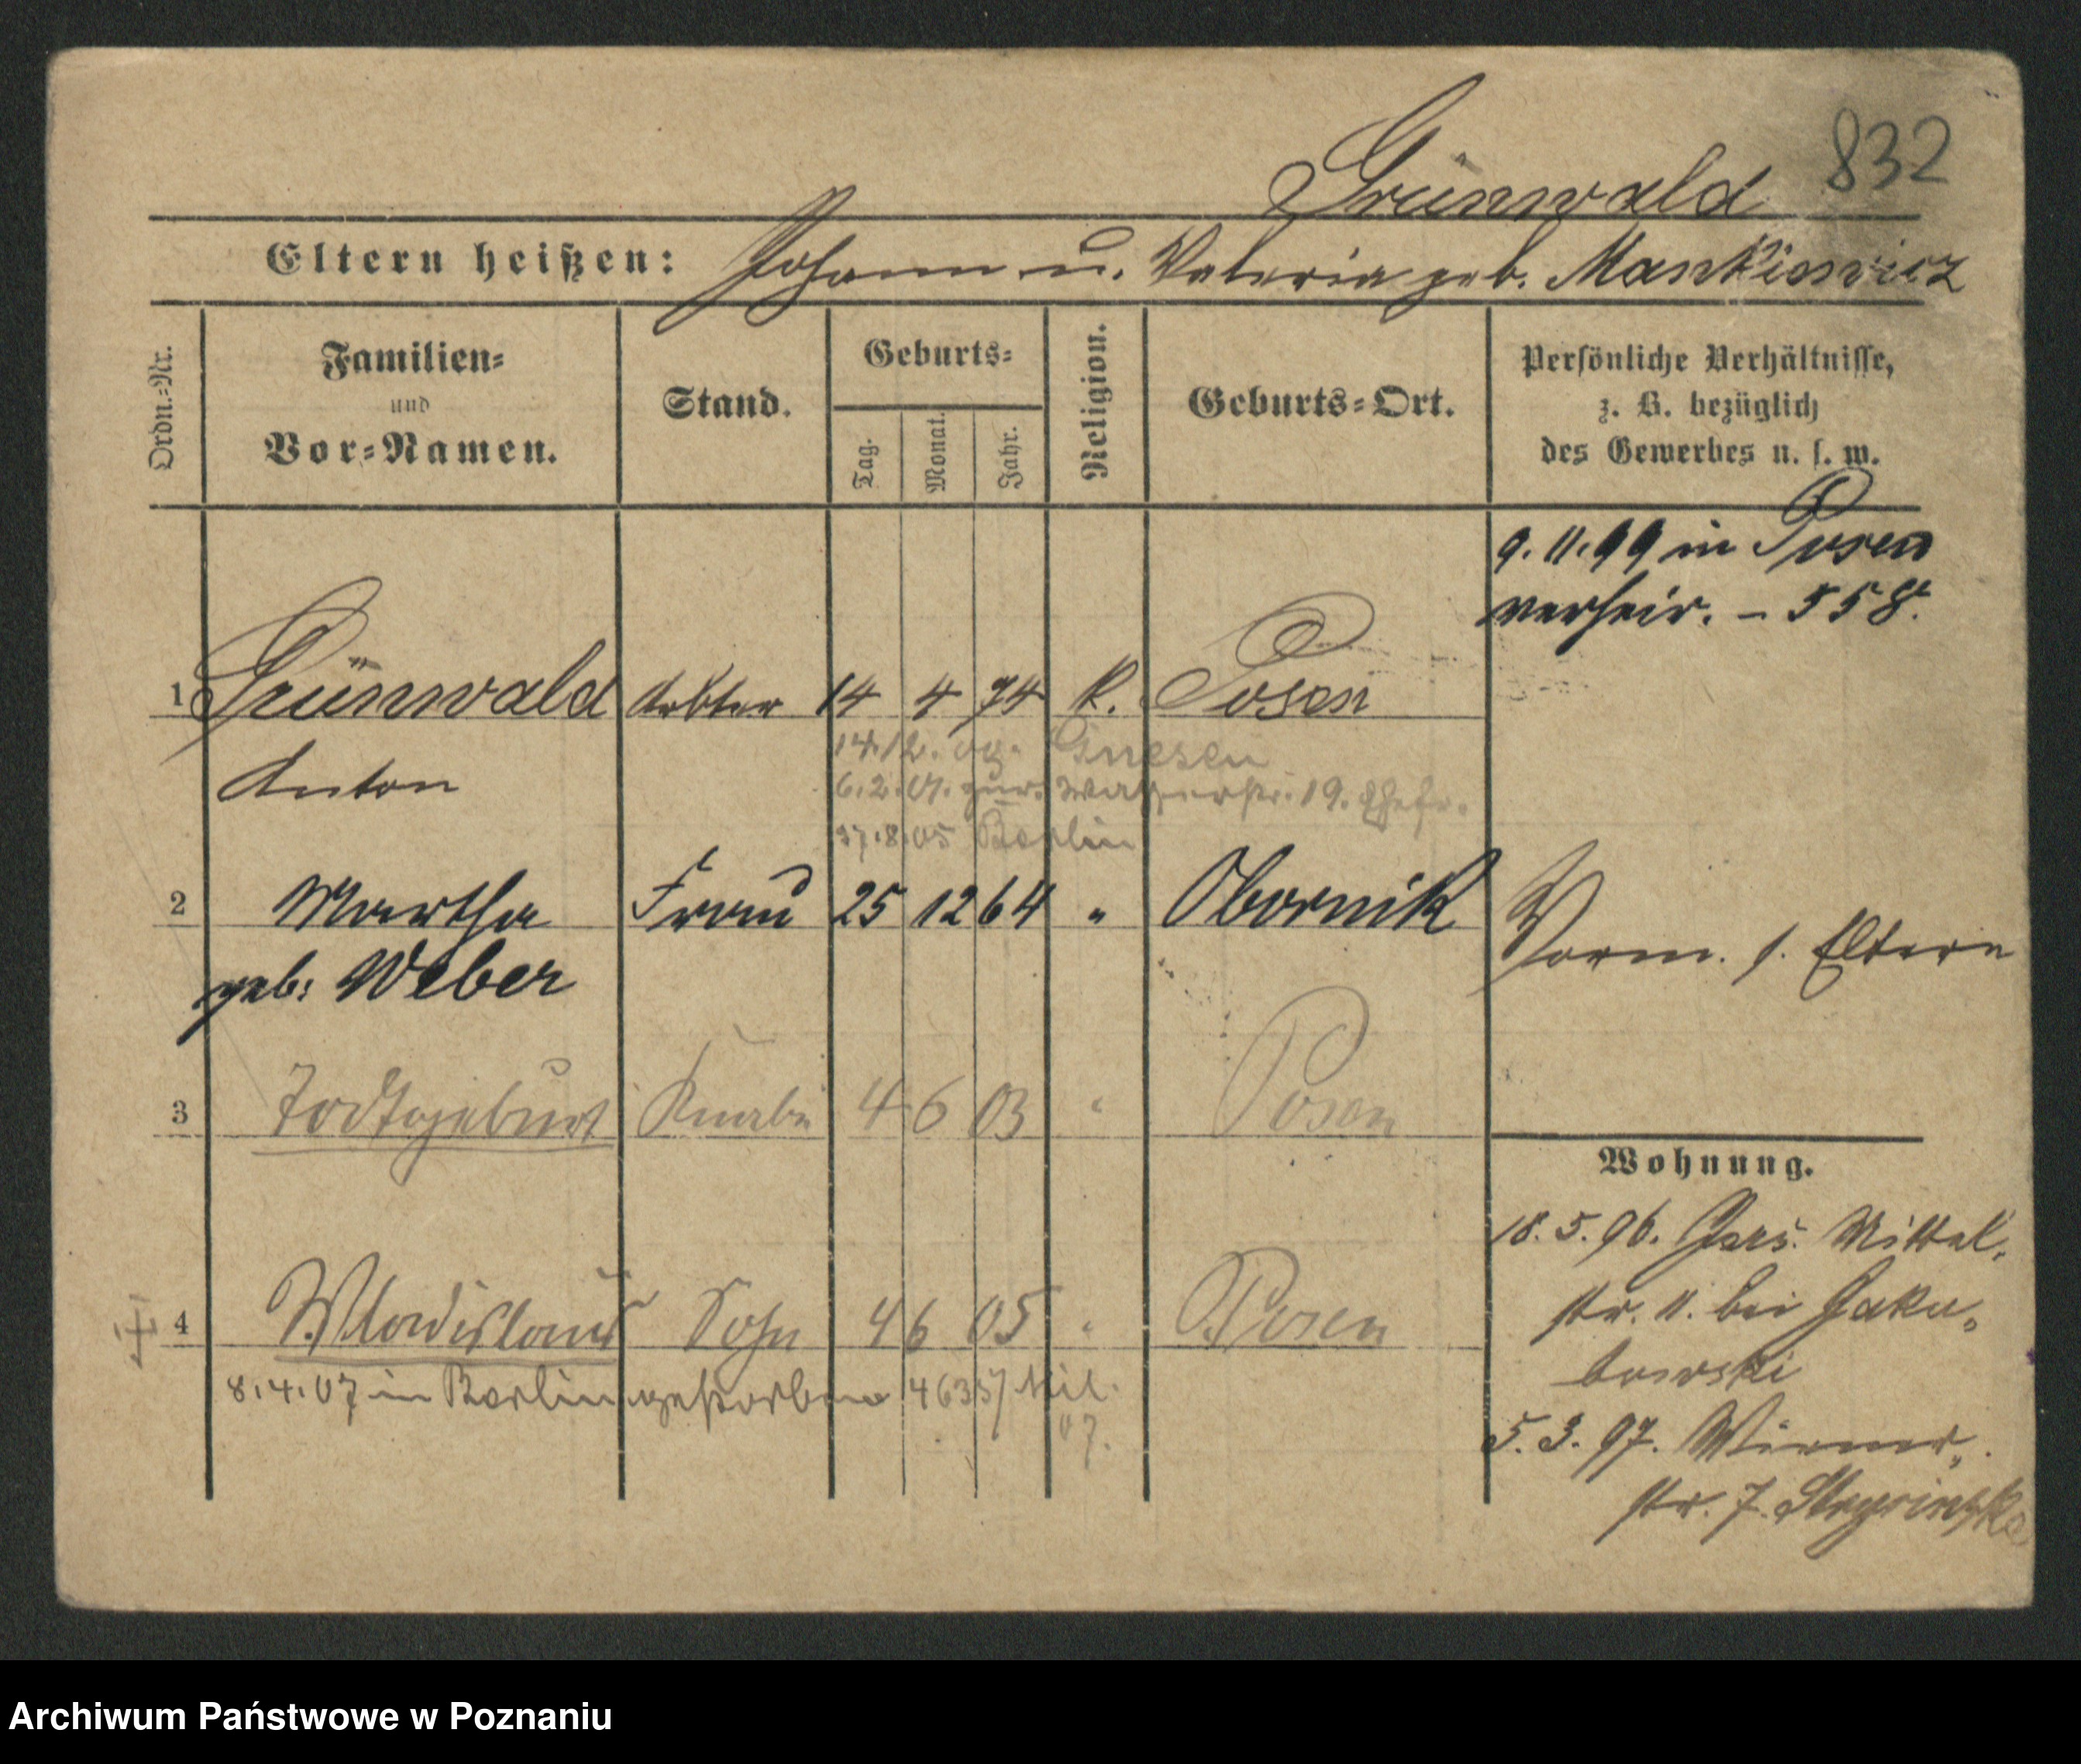 832
Grünwald
Eltern heißen: Johann u. Valeria geb. Mankiewicz
Ordn.-Nr.
Familien-
und
Vor-Namen.
Stand.
Geburts-
Tag. Monat. Jahr.
Religion.
Geburts-Ort.
Persönliche Verhältnisse,
z. B. bezüglich
des Gewerbes u. s. w.
9.11.99 in Posen
verheir. - 558.
1 Grünwald Arbter 14 4 74 k. Posen
Anton
14.12. Gnesen
6.2. zur. 19. Ehefr.
8.05 Berlin
2 Martha Frau 25 12 64 " Obornik
geb: Weber
Vorm. s. Eltern
3 Todtgeburt Knabe 4 6 03 " Posen
4 Wladislaus Sohn 4 6 05 " Posen
8.4.07 in Berlin gestorben 4635/ Mil.
07.
Wohnung.
18.5.96. Mittel-
str. 11. bei Jaku-
bowski
5.3.97.
str. 7.
Archiwum Państwowe w Poznaniu